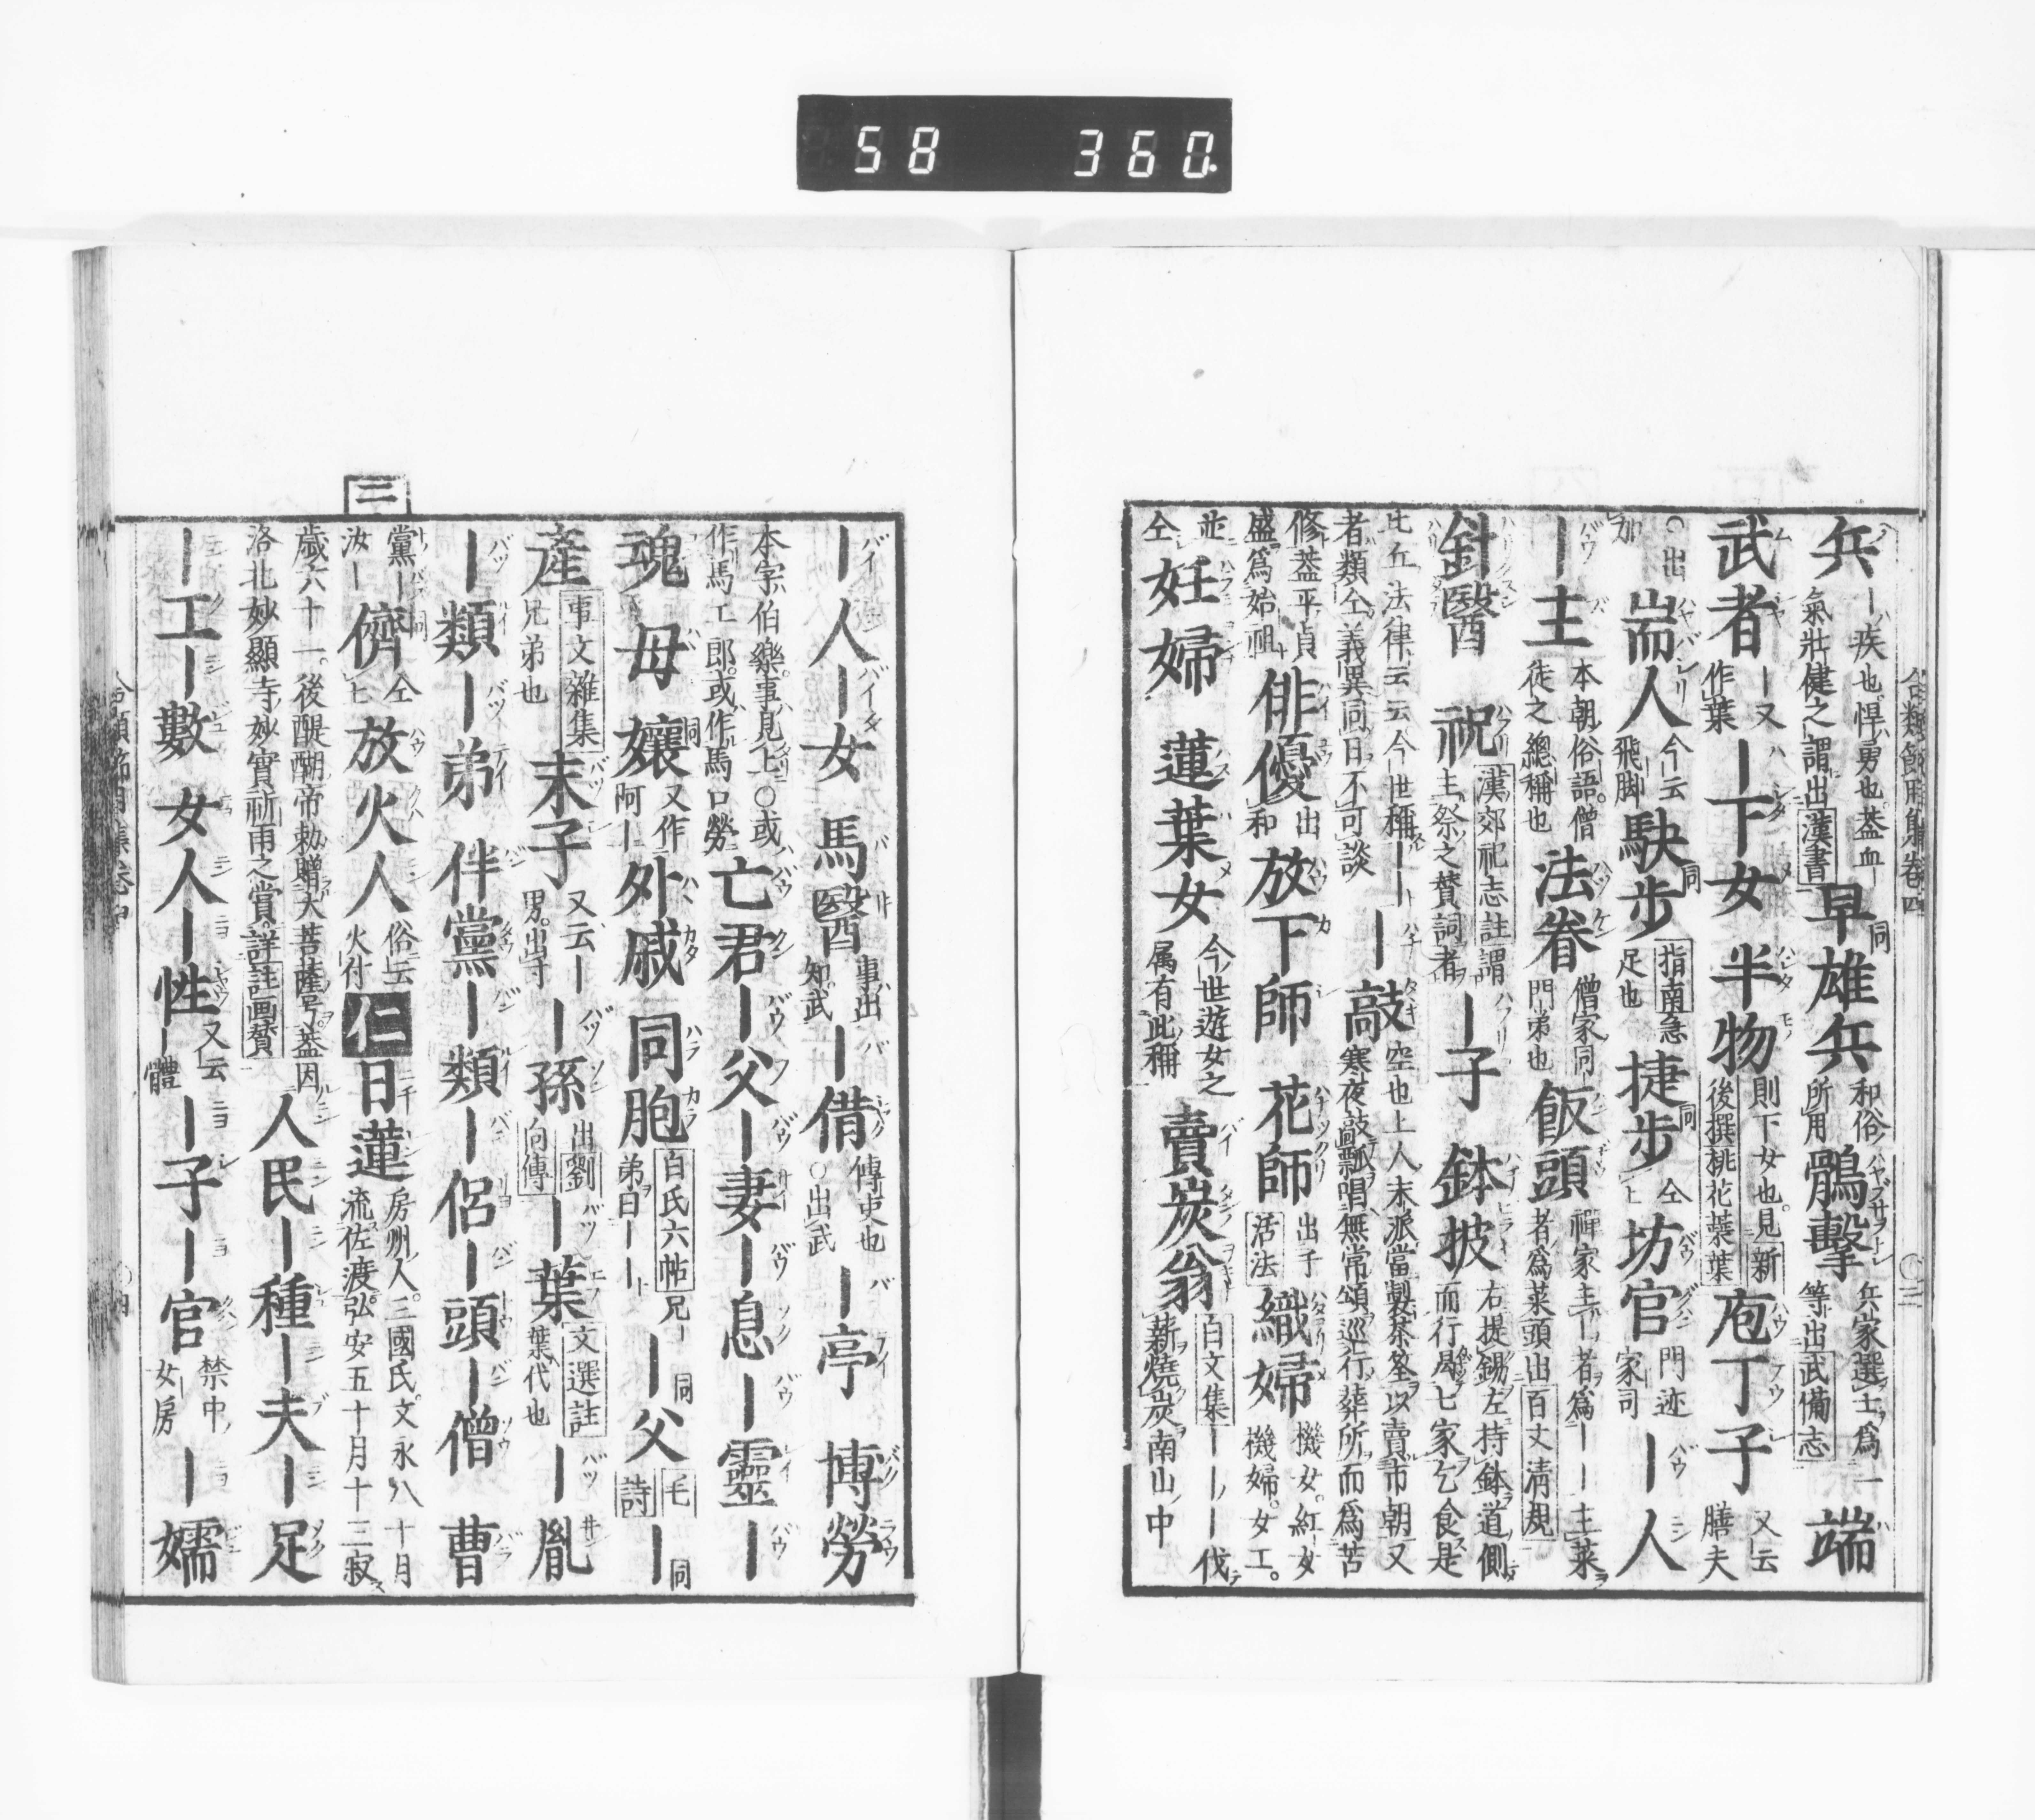 58 360
兵 ―疾也悍勇也蓋血氣壯健之謂出漢書 早雄兵 同 和俗所用 鶻擊 兵家選士爲一等出武備志 端
武者 ―又作葉 ―下女 半物 則下女也見新後撰桃花葉葉 庖丁子 又云膳夫
○出加 耑人 今云飛脚 駃步 同 指南急足也 捷步 同 仝上 坊官 門迹家司 ―人
―主 本朝俗語僧徒之總稱也 法眷 僧家同門弟也 飯頭 禪家主―者爲――主菜者爲菜頭出百丈清規
針醫 祝 漢郊祀志註謂主祭之賛詞者 ―子 鉢披 右提錫左持鉢道側而行局七家乞食是
比丘法律云云今世稱――者類仝義異同日不可談 ―敲 空也上人末派當製茶筌以賣市朝又寒夜敲瓢唱無常頌巡行葬所而爲苦
修蓋平貞盛爲始祖 俳優 出和 放下師 花師 出子活法 織婦 機女紅女機婦女工
並仝 妊婦 蓮葉女 今世遊女之属有此稱 賣炭翁 白文集―――伐薪燒炭南山中
―人―女 馬醫 事出知武 ―借 傳吏也○出武 ―亭 博勞
本字伯樂事見上○或作馬工郎或作馬口勞 亡君―父―妻―息―靈―
魂 母 孃 同 又作阿― 外戚 同胞 白氏六帖兄―弟曰―― ―父 同 毛詩 ― 同
產 事文雜集兄弟也 末子 又云―男出寸 ―孫 出劉向傳 ―葉 文選註葉代也 ―胤
―類―弟 伴黨―類―侶―頭―僧 曹
黨―汝― 儕 同 仝上 放火人 俗云火付 仁 日蓮 房州人三國氏文永八十月流佐渡弘安五十月十三寂
二
歲六十一後醍醐帝勅贈大菩薩号蓋因洛北妙顯寺妙實祈雨之賞詳註画賛 人民―種―夫―足
―工―數 女人―性 又云―體 ―子―官 禁中女房 ―嬬